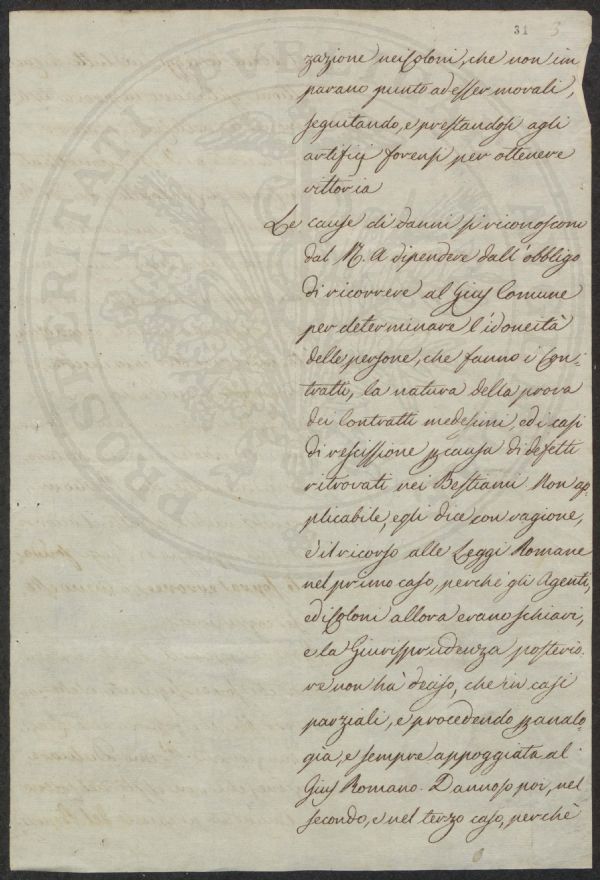 31 3
zazione nei Coloni, che non im
parano punto ad esser morali,
seguitando, e prestandosi agli
artifizj forensi per ottenere
vittoria
Le cause di danni si riconoscono
dal M. A dipendere dall'obbligo
di ricorrere al Gius Comune
per determinare l'idoneità
delle persone, che fanno i Con-
tratti, la natura della prova
dei Contratti medesimi, ed i casi
di rescissione p causa di difetti
ritrovati nei Bestiami Non ap
plicabile, egli dice con ragione,
è il ricorso alle Leggi Romane
nel primo caso, perché gli Agenti,
ed i Coloni allora erano schiavi,
e la Giurisprudenza posterio
re non hà deciso, che in casi
parziali, e procedendo p analo-
gia, e sempre appoggiata al
Gius Romano. Dannoso poi, nel
secondo, e nel terzo caso, perchè
PROSPERITATI PVB